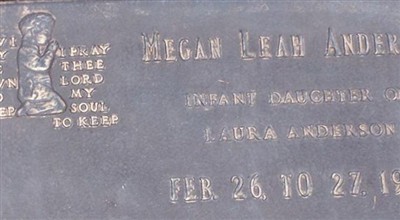 I PRAY
THEE
LORD
MY
SOUL
TO KEEP
MEGAN LEAH ANDER
INFANT DAUGHTER O
LAURA ANDERSON
FEB. 26 TO 27, 19